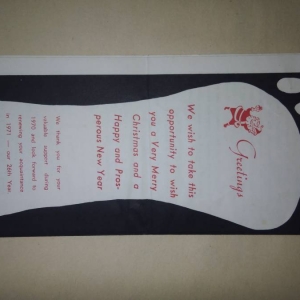 Greetings
We wish to take this
opportunity to wish
you a Very Merry
Christmas and a
Happy and Pros-
perous New Year
We thank you for your
valuable support during
1970 and look forward to
renewing your acquaintance
in 1971 — our 20th Year.